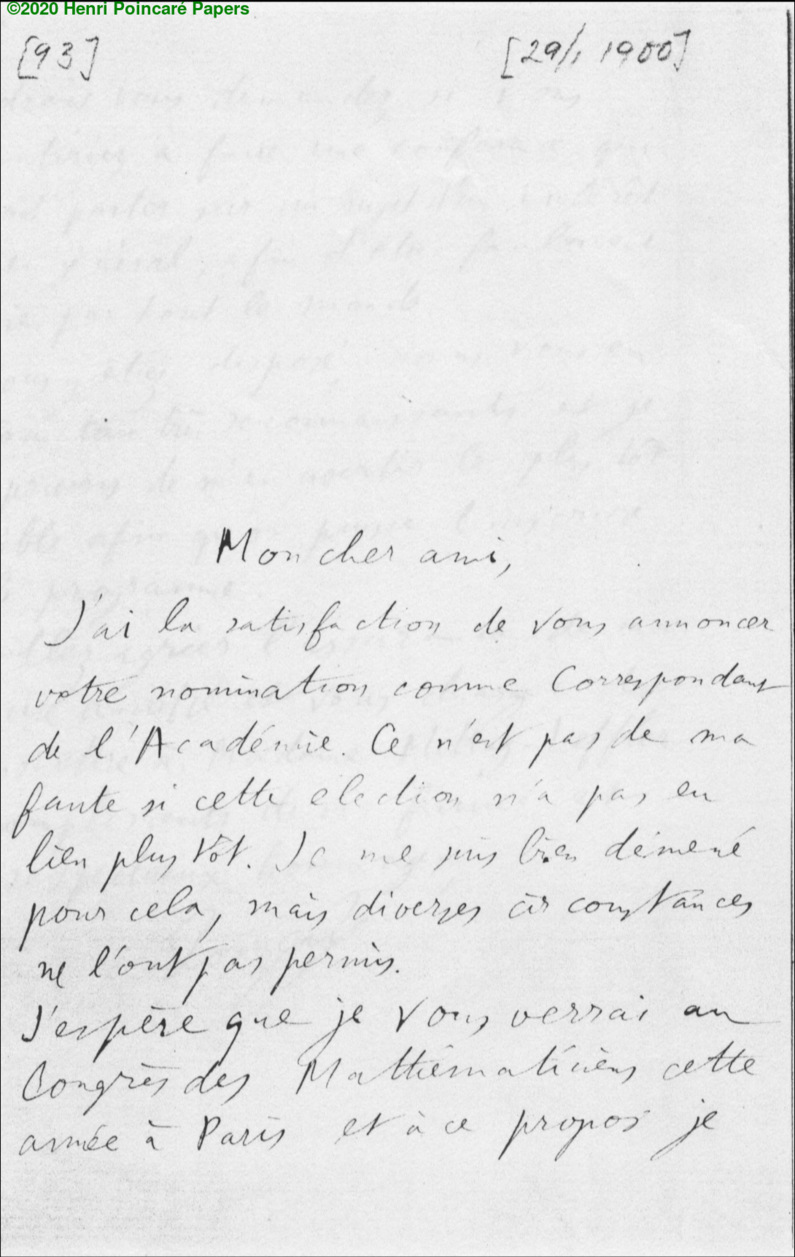 ©2020 Henri Poincaré Papers
[93] [29/1 1900]
Mon cher ami,
J'ai la satisfaction de vous annoncer
votre nomination comme Correspondant
de l'Académie. Ce n'est pas de ma
faute si cette élection n'a pas eu
lieu plus tôt. Je me suis bien démené
pour cela, mais diverses circonstances
ne l'ont pas permis.
J'espère que je vous verrai au
Congrès des Mathématiciens cette
année à Paris et à ce propos je